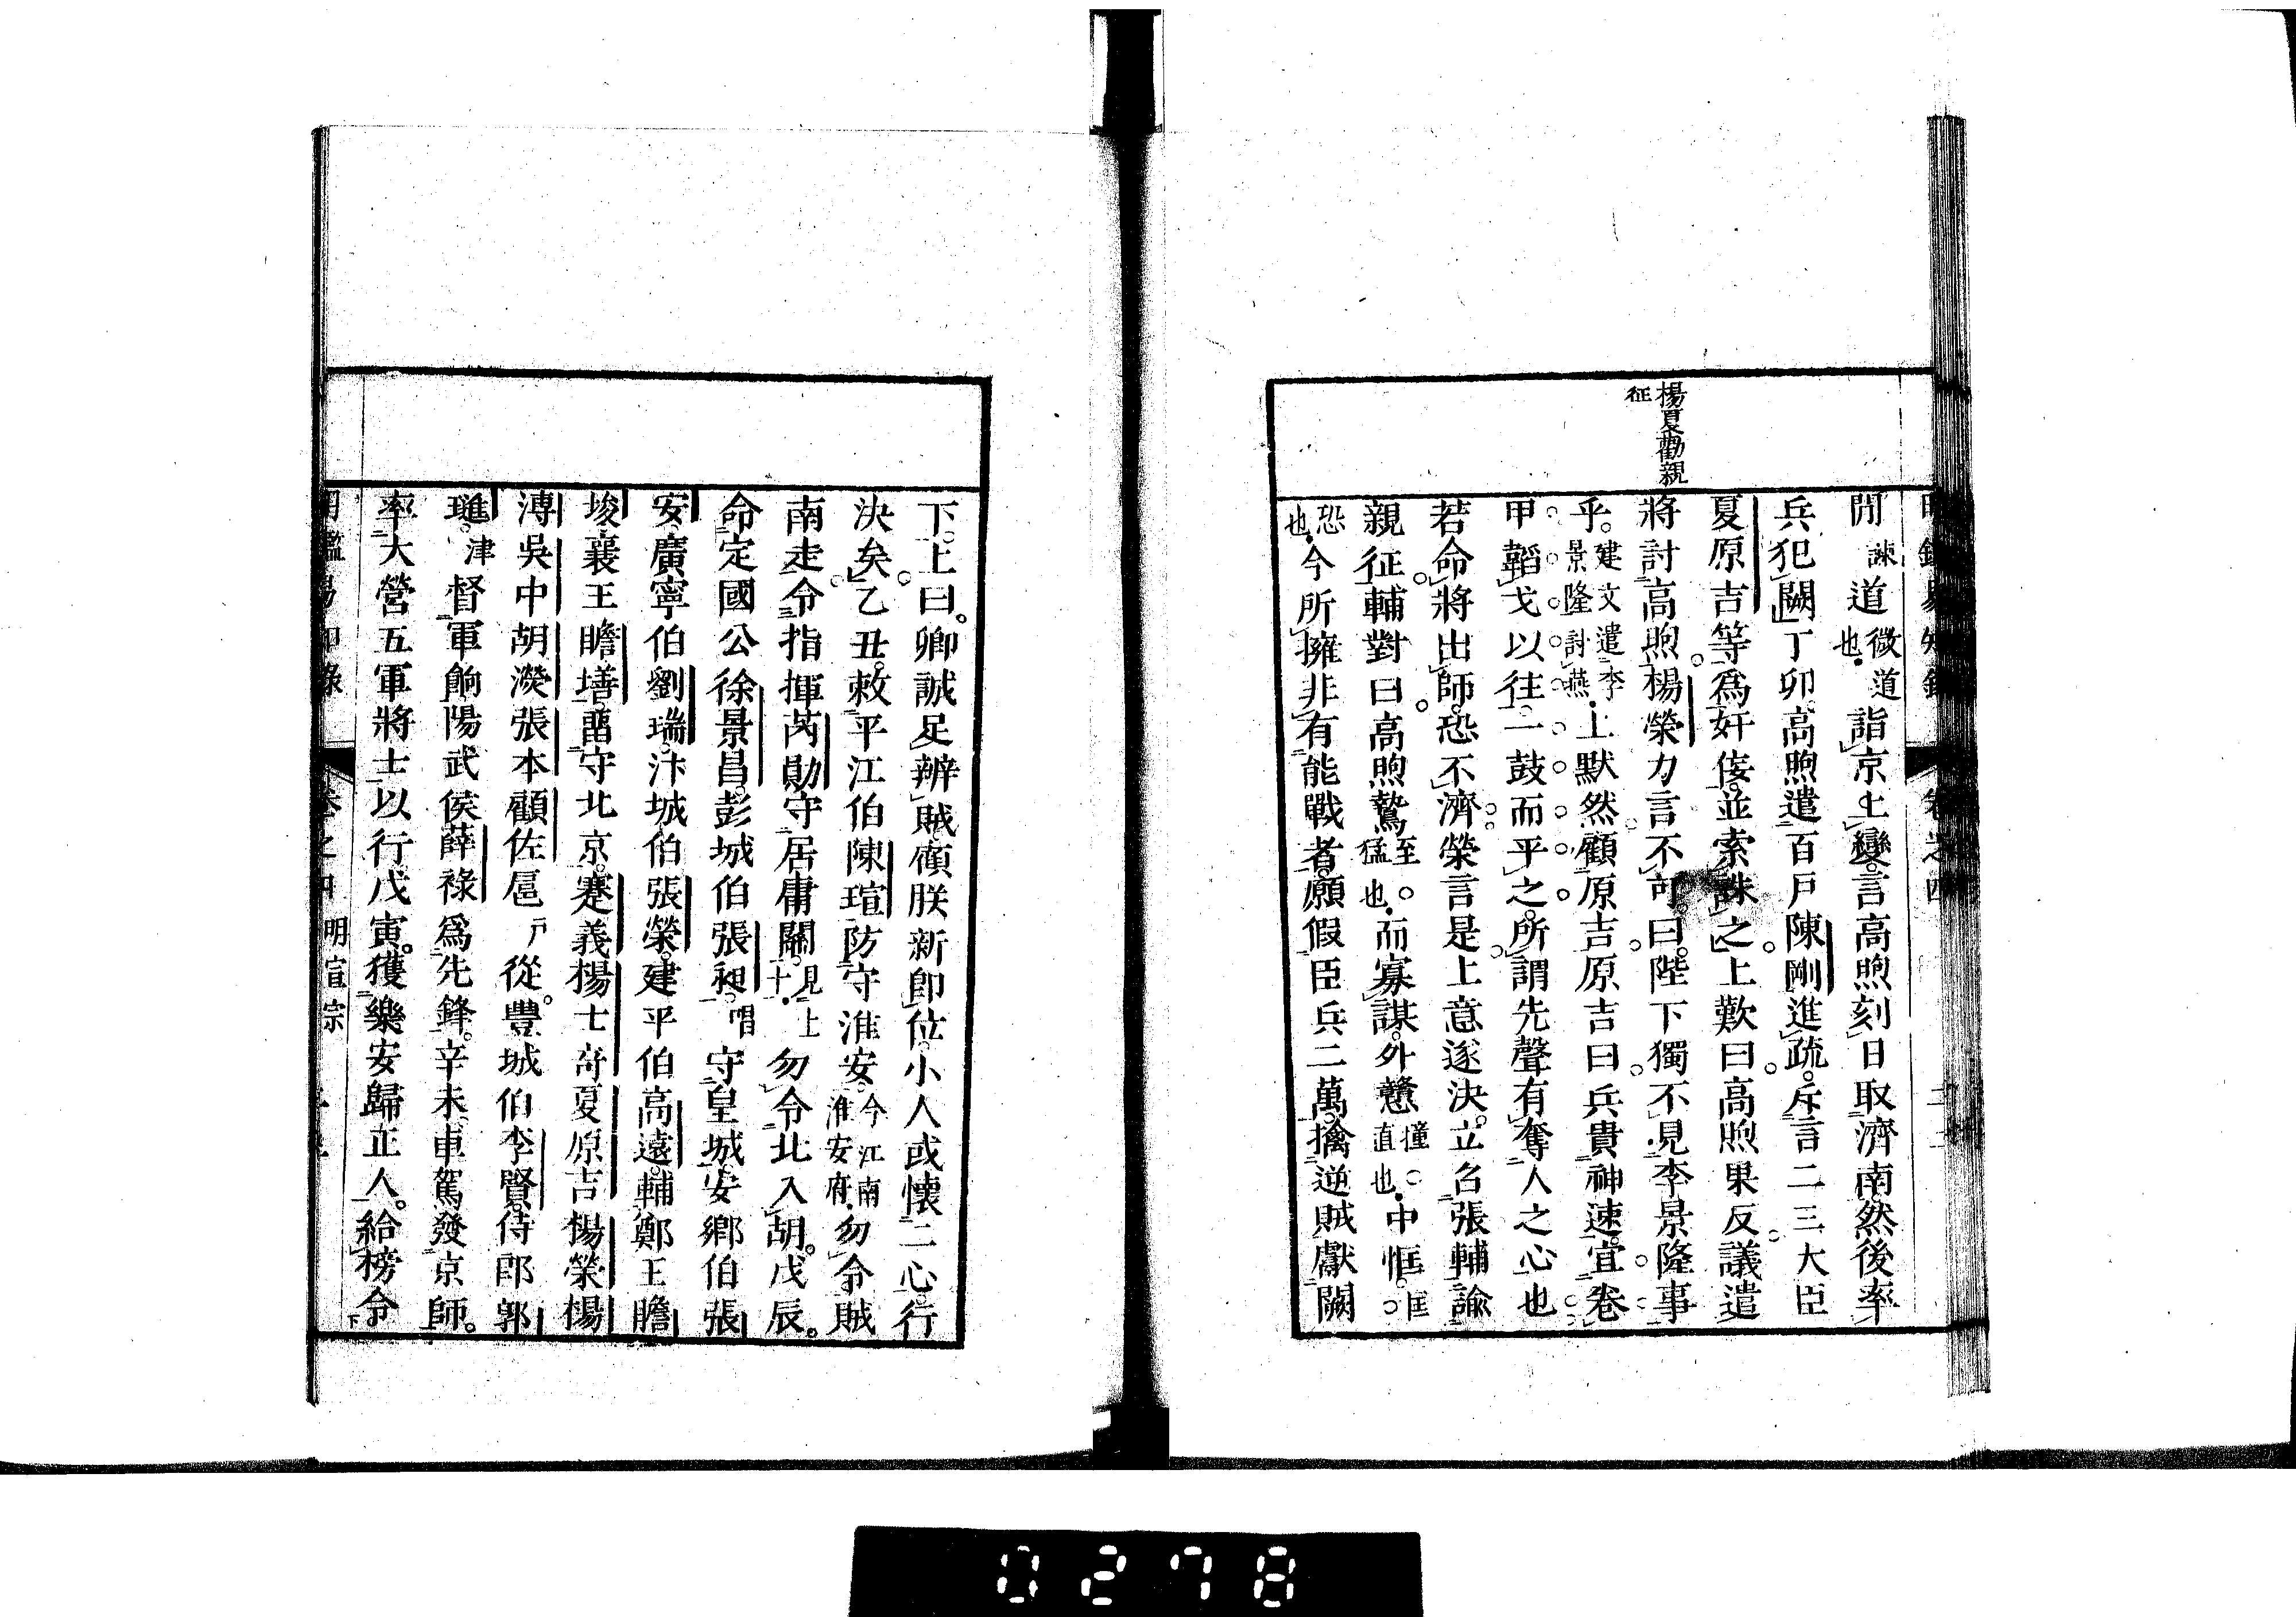 楊夏勸親
征
明鑑易知錄
卷之四
閒諫道微道也詣京上變言高煦刻日取濟南然後率
兵犯闕丁卯高煦遣百戸陳剛進疏斥言二三大臣
夏原吉等爲奸佞並索誅之上歎曰高煦果反議遣
將討高煦楊榮力言不可曰陛下獨不見李景隆事
乎建文遣李景隆討燕上默然顧原吉原吉曰兵貴神速宜卷
甲韜戈以往一鼓而平之所謂先聲有奪人之心也
若命將出師恐不濟榮言是上意遂決立召張輔諭
親征輔對曰高煦鷙至猛也而寡謀外戇撞直也中恇匡
恐也今所擁非有能戰者願假臣兵二萬擒逆賊獻闕
下上曰卿誠足辨賊顧朕新卽位小人或懷二心行
決矣乙丑敕平江伯陳瑄防守淮安今江南淮安府勿令賊
南走令指揮芮勛守居庸關見上十勿令北入胡戊辰
命定國公徐景昌彭城伯張昶唱守皇城安鄉伯張
安廣寧伯劉瑞汴城伯張榮建平伯高遠輔鄭王瞻
埈襄王瞻墡畱守北京蹇義楊士奇夏原吉楊榮楊
溥吳中胡濙張本顧佐扈戸從豐城伯李賢侍郎郭
璡津督軍餉陽武侯薛祿爲先鋒辛未車駕發京師
率大營五軍將士以行戊寅獲樂安歸正人給榜令
明鑑易知錄
卷之四
明宣宗